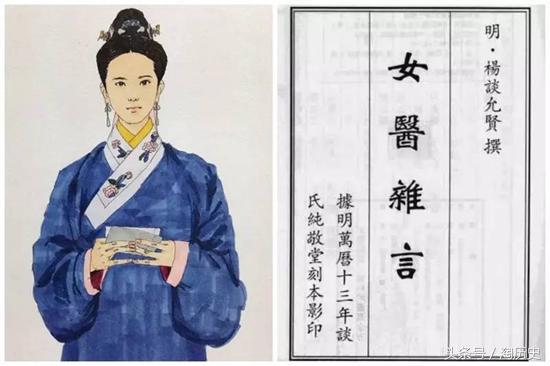 明·楊談允賢撰
女醫雜言
據明萬曆十三年談
氏純敬堂刻本影印
头条号／淘历史